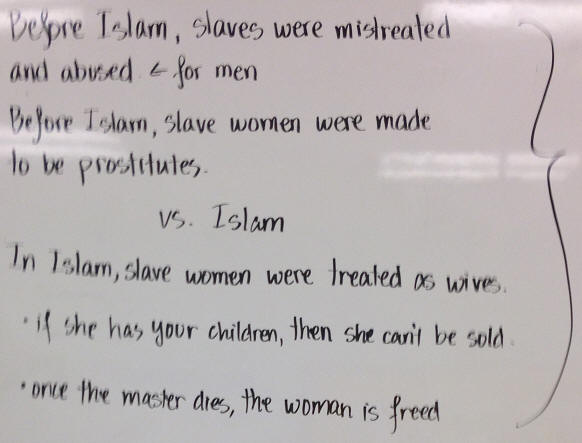 Before Islam, slaves were mistreated
and abused ← for men
Before Islam, slave women were made
to be prostitutes.
vs. Islam
In Islam, slave women were treated as wives.
• if she has your children, then she can't be sold.
• once the master dies, the woman is freed